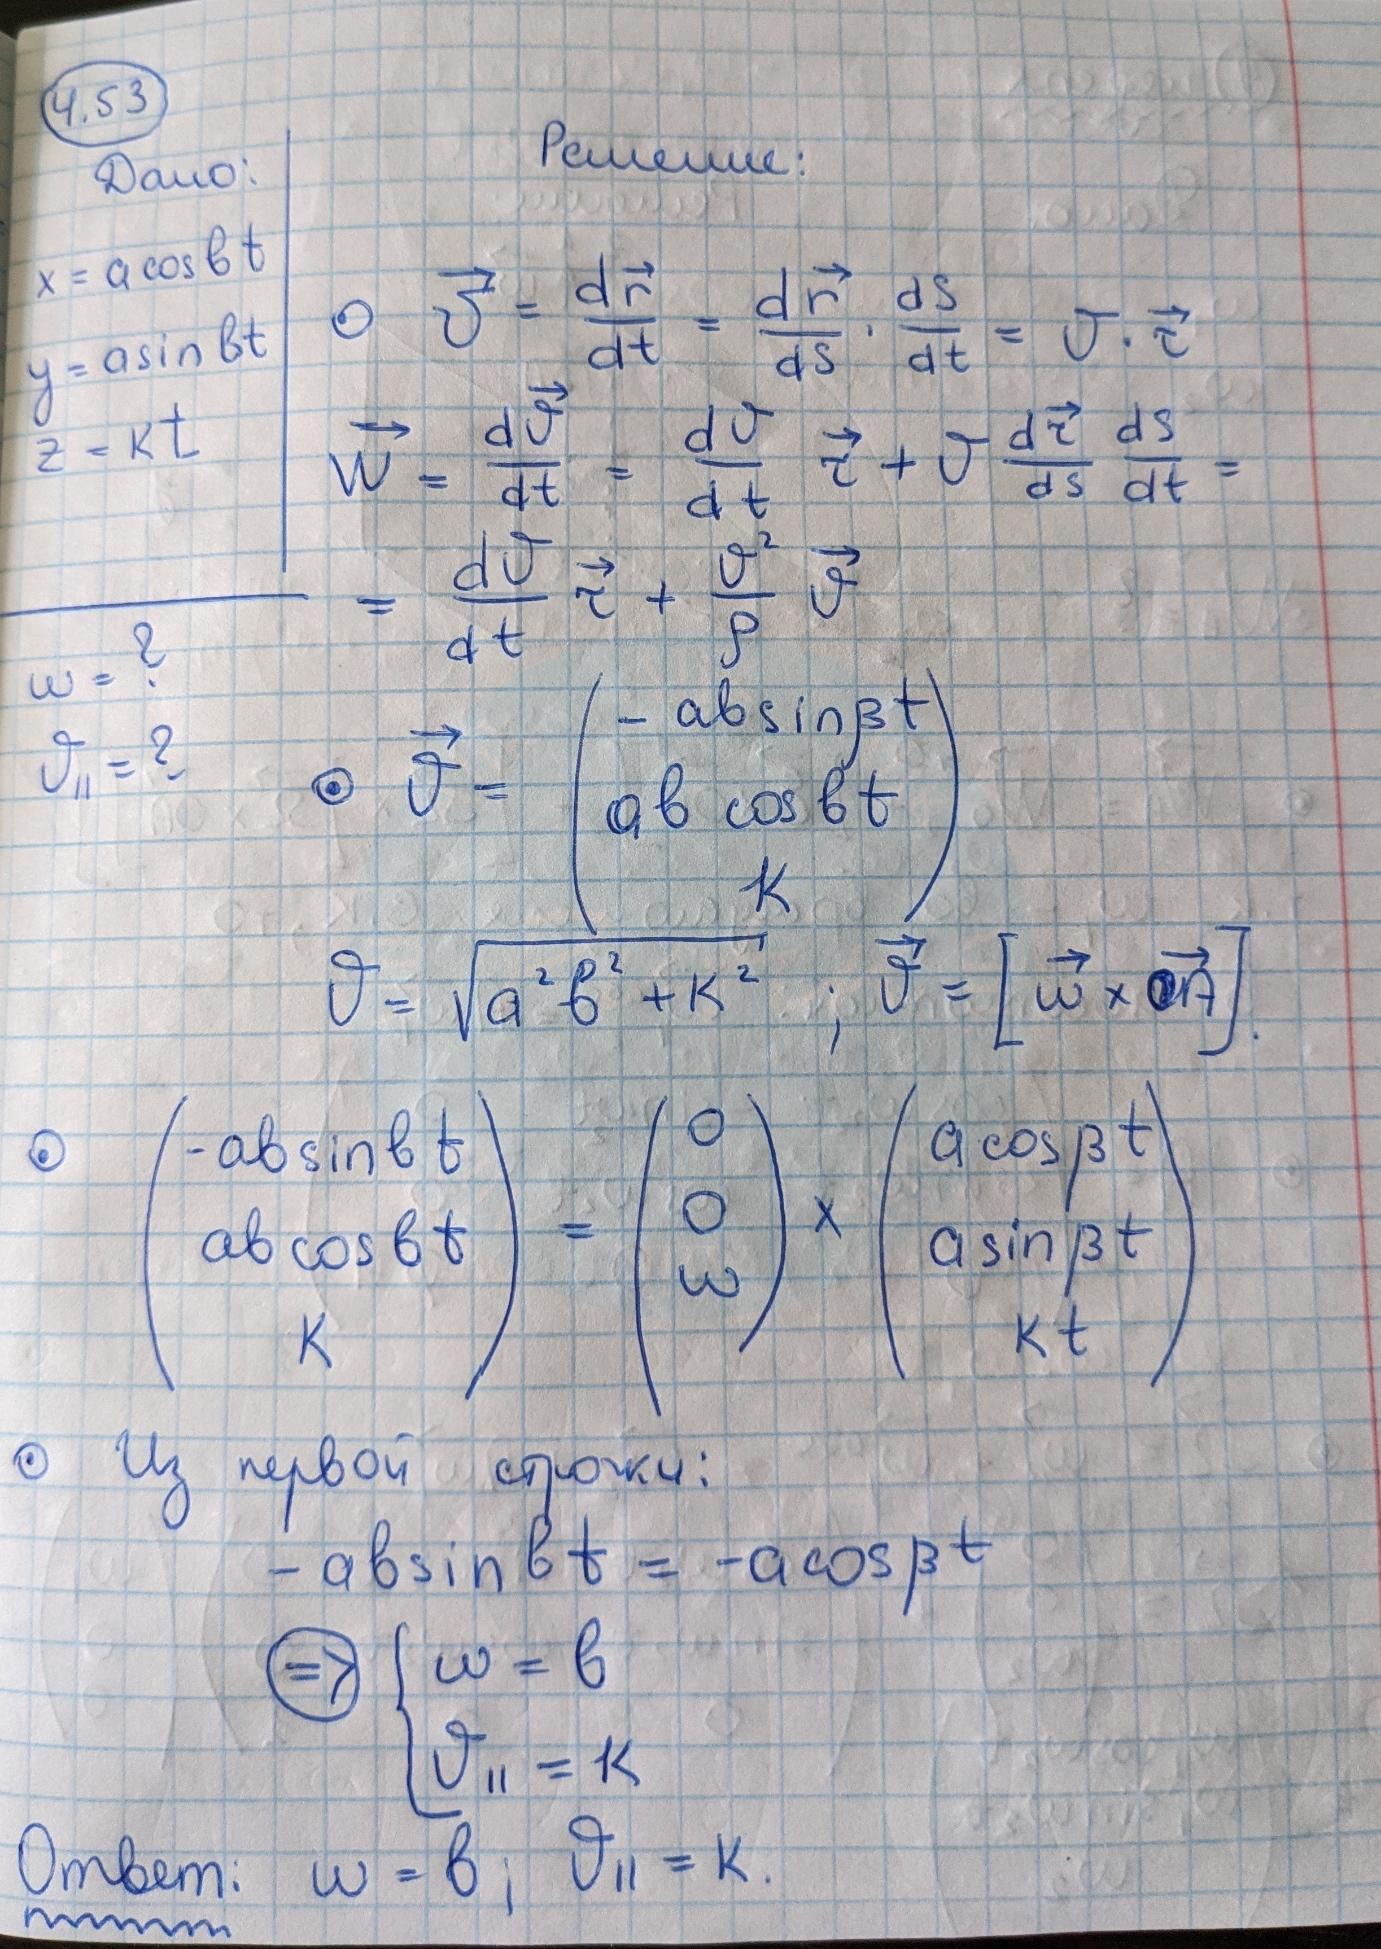 4.53
Дано:
x = a cos bt
y = a sin bt
z = kt
ω = ?
𝒱|| = ?
Решение:
⊙ 𝒱⃗ = dr⃗/dt = dr⃗/ds · ds/dt = 𝒱 · τ⃗
W⃗ = d𝒱⃗/dt = d𝒱/dt τ⃗ + 𝒱 dτ⃗/ds ds/dt =
= d𝒱/dt τ⃗ + 𝒱²/ρ 𝒱⃗
⊙ 𝒱⃗ = ( - ab sin βt
ab cos bt
k )
𝒱 = √(a²b² + k²) ; 𝒱⃗ = [ω⃗ × OA⃗].
⊙ ( -ab sin bt ) ( 0 ) ( a cos βt )
( ab cos bt ) = ( 0 ) × ( a sin βt )
( k ) ( ω ) ( kt )
⊙ Из первой строчки:
- ab sin bt = - a cos βt
⇒ { ω = b
𝒱|| = k
Ответ: ω = b; 𝒱|| = k.